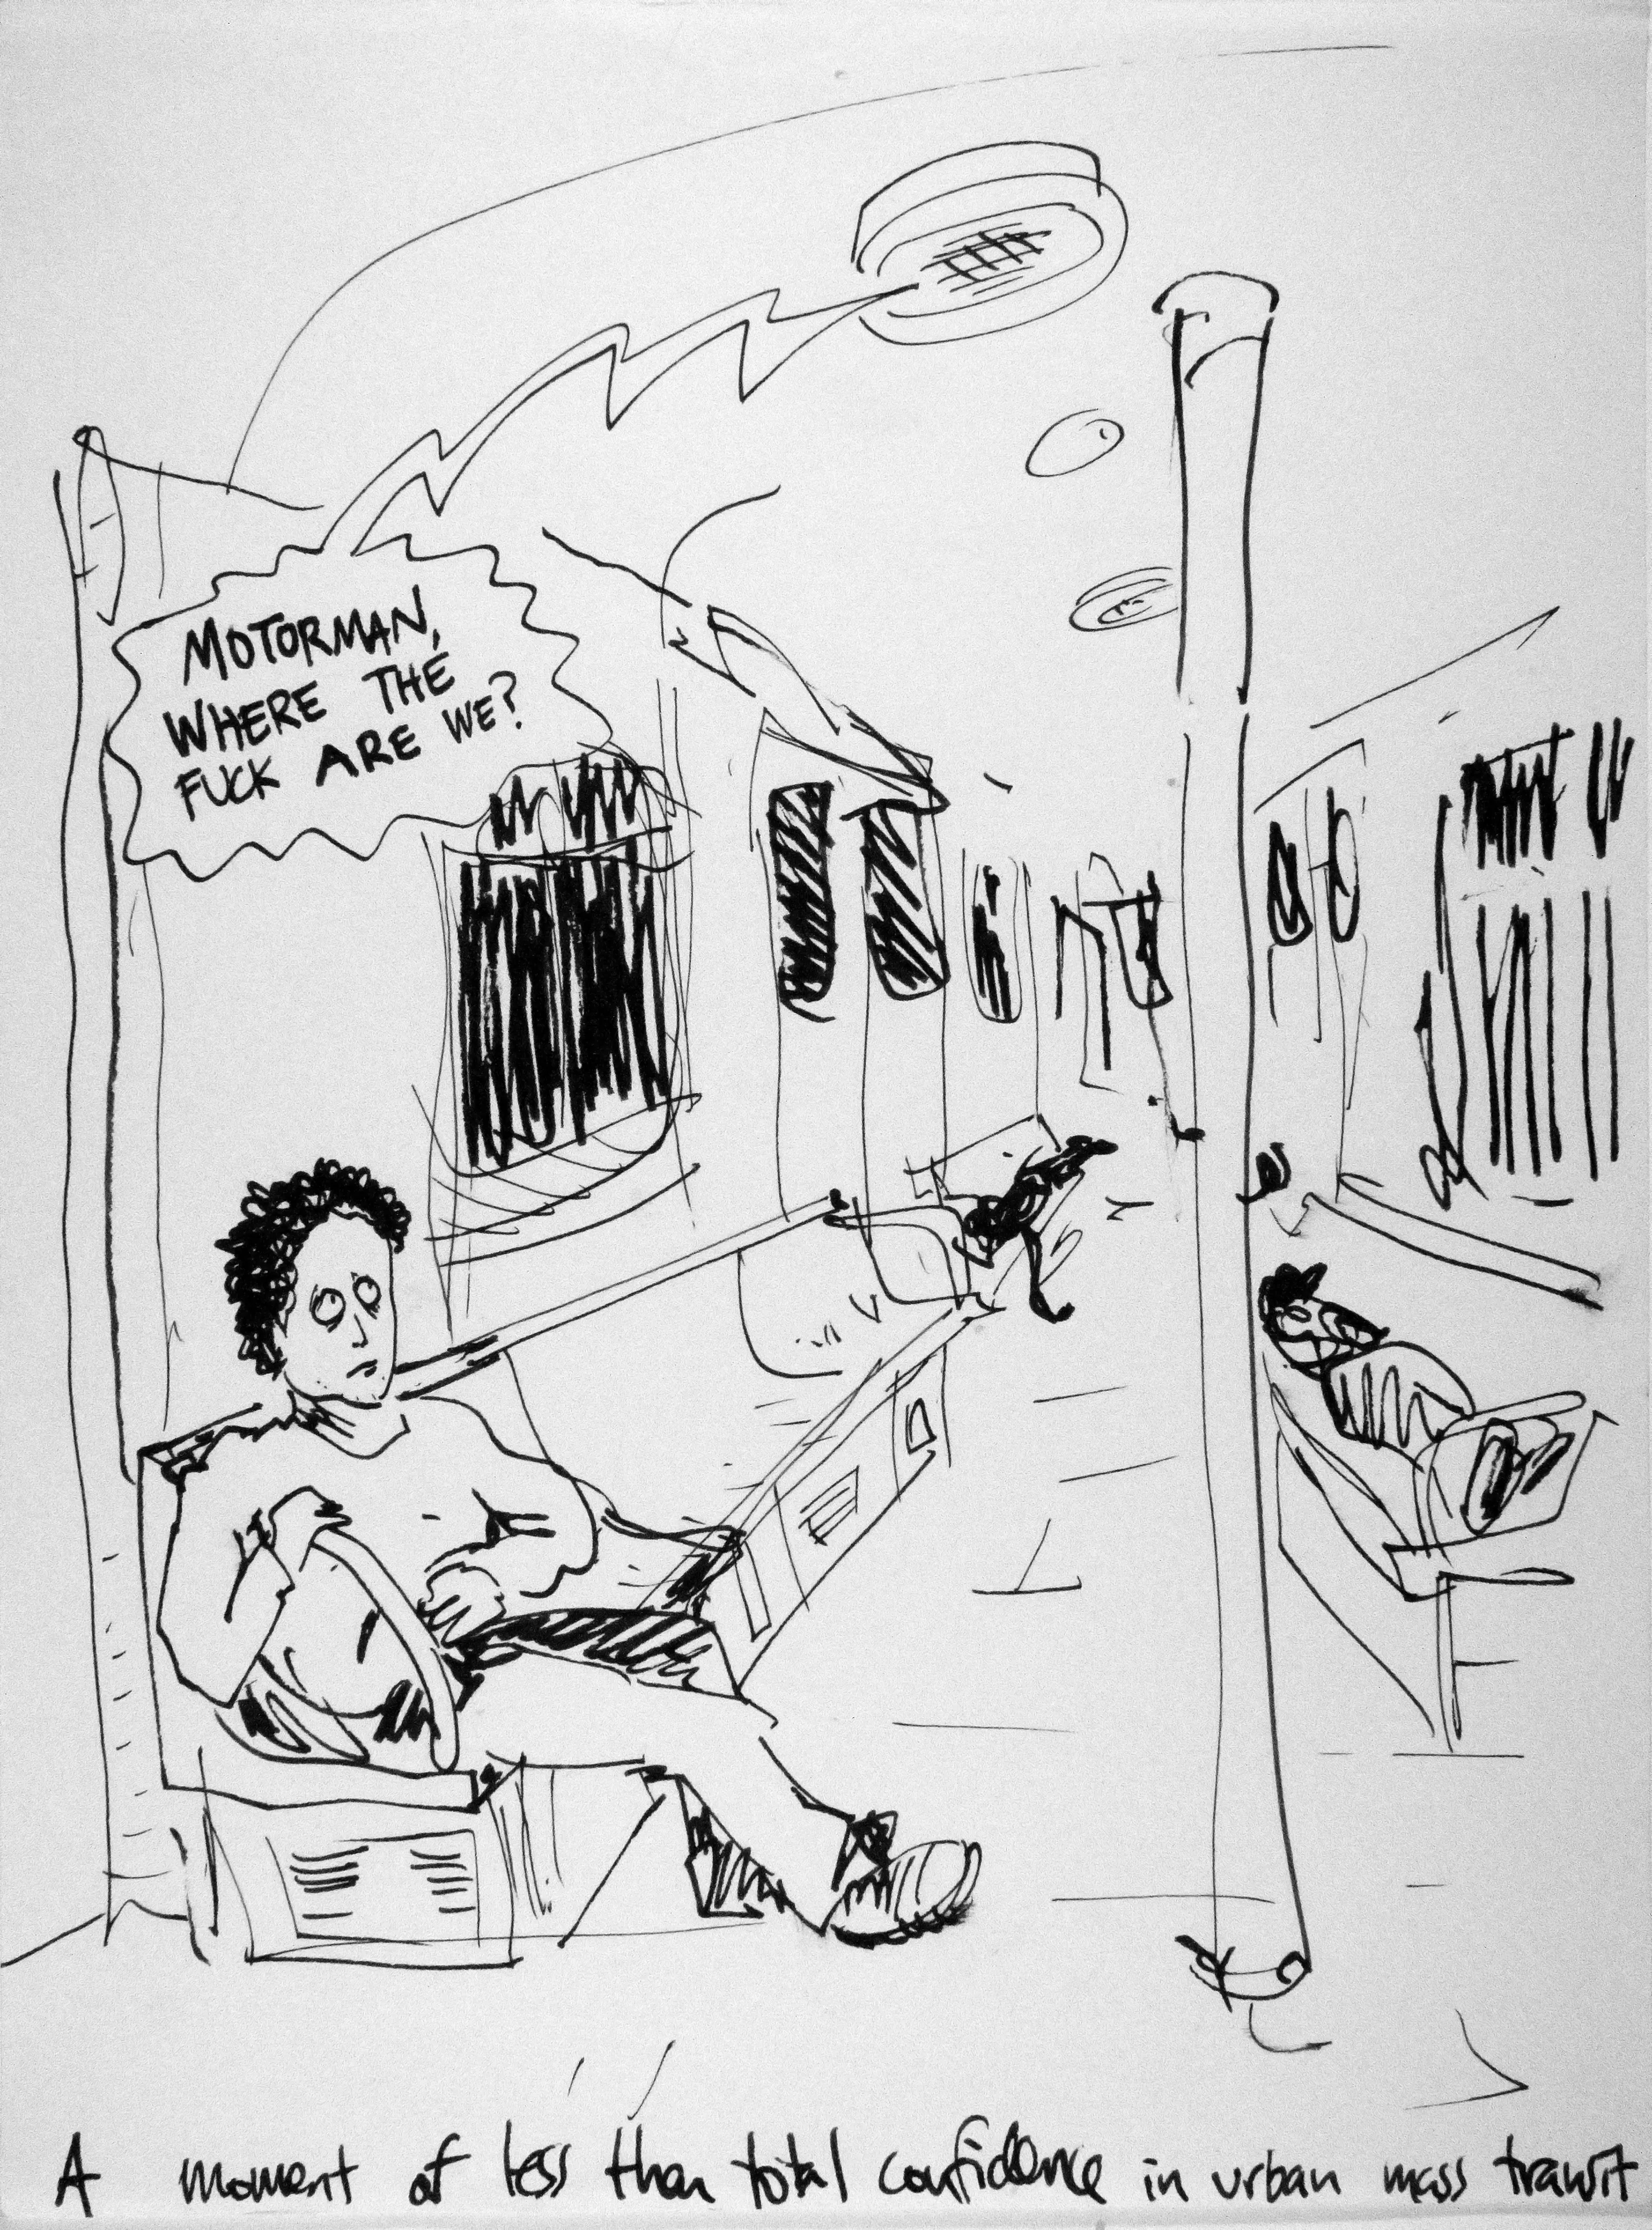 MOTORMAN,
WHERE THE
FUCK ARE WE?
A moment of less than total confidence in urban mass transit